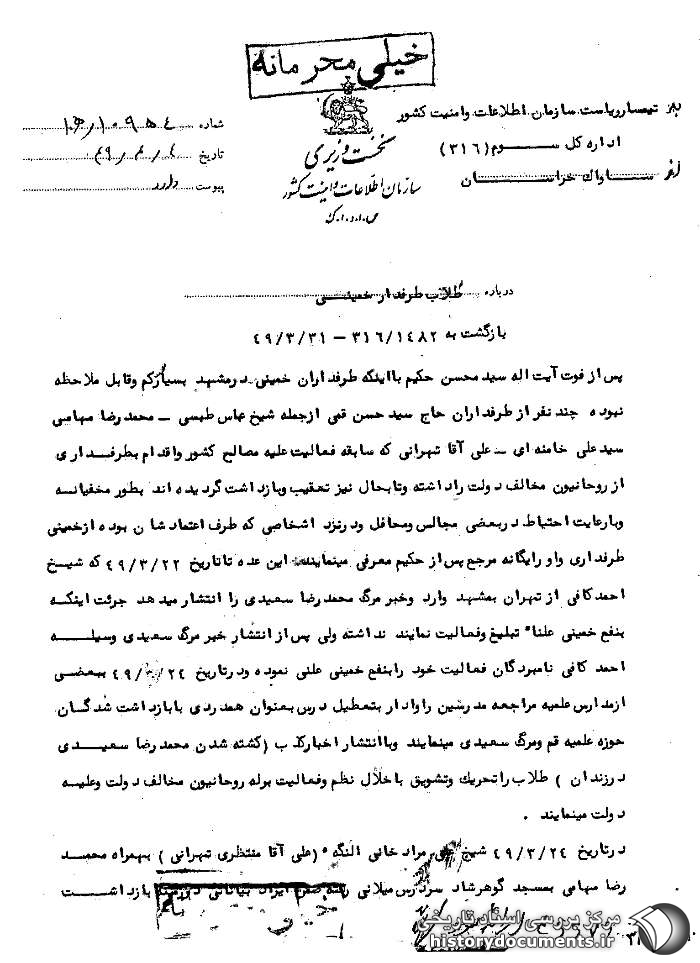 خیلی محرمانه
به تیمسار ریاست سازمان اطلاعات وامنیت کشور
اداره کل ســـوم (۳۱۶)
از ســاواك خراســـان
نخست وزیری
سازمان اطلاعات وامنیت کشور
س.ا.و.ا.ک
شماره
تاریخ
پیوست دارد
درباره طلاب طرفدار خمینــی
بازگشت به ۳۱۶/۱۴۸۲ – ۴۹/۳/۳۱
پس از فوت آیت اله سید محسن حکیم بااینکه طرفداران خمینی درمشهد بسیارکم وقابل ملاحظه
نبوده چند نفر از طرفداران حاج سید حسن قمی ازجمله شیخ عباس طبسی – محمد رضا مهامی
سیدعلی خامنه ای – علی آقا تهرانی که سابقه فعالیت علیه مصالح کشور واقدام بطرفــداری
از روحانیون مخالف دولت راداشته وتابحال نیز تعقیب وبازداشت گردیده اند بطور مخفیانــه
وبارعایت احتیاط دربعضی مجالس ومحافل ودرنزد اشخاصی که طرف اعتمادشان بوده ازخمینی
طرفداری واو رایگانه مرجع پس از حکیم معرفی مینمایند این عده تاتاریخ ۴۹/۳/۲۲ که شیــخ
احمدکافی از تهران بمشهد وارد وخبر مرگ محمدرضا سعیدی را انتشار میدهد جرئت اینکــه
بنفع خمینی علنا" تبلیغ وفعالیت نمایند نداشته ولی پس از انتشار خبر مرگ سعیدی وسیلــه
احمد کافی نامبردگان فعالیت خود رابنفع خمینی علنی نموده ودرتاریخ ۴۹/۳/۲۴ ببعضــی
ازمدارس علمیه مراجعه مدرسین راوادار بتعطیل درس بعنوان همدردی بابازداشت شدگــان
حوزه علمیه قم ومرگ سعیدی مینمایند وباانتشار اخبارکذب (کشته شدن محمدرضا سعیــدی
درزندان ) طلاب راتحریك وتشویق باخلال نظم وفعالیت برله روحانیون مخالف دولت وعلیــه
دولت مینمایند .
درتاریخ ۴۹/۳/۲۴ شیخ مراد خانی النگه (علی آقا منتظری تهرانی) بهمراه محمــد
رضا مهامی بمسجد گوهرشاد سردرس میلانی رفته ضمن ایراد بیاناتی درزمینه بازداشــت
مرکز بررسی اسناد تاریخی
historydocuments.ir